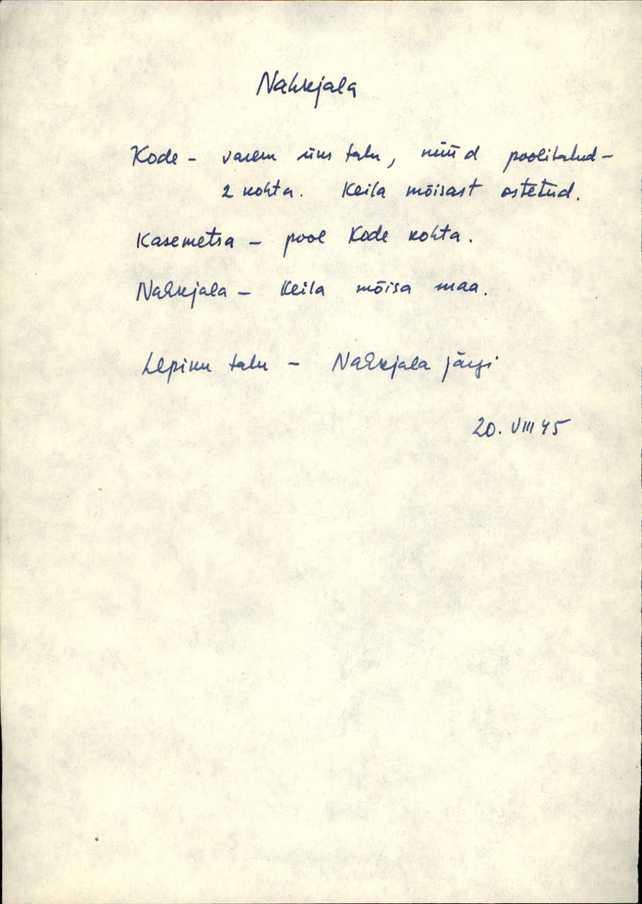 Nahkjala
Kode - varem üks talu, nüüd poolitatud -
2 kohta. Keila mõisast ostetud.
Kasemetsa - pool Kode kohta.
Nahkjala - Keila mõisa maa.
Lepiku talu - Nahkjala järgi
20. VIII 45